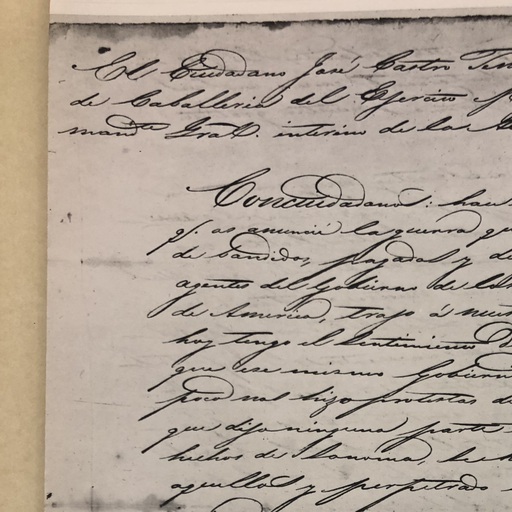 El Ciudadano José Castro Ten
de Caballeria del Ejercito
mand.te Gral. interino de la
Conciudadanos: hace
q.e os anuncié la guerra qu
de bandidos, pagados y
agentes del Gobierno de los
de America, trajo á nues
hoy tengo el sentimiento
que ese mismo Gobiern
poco nal hizo protestas de
que dijo ninguna parte
hechos de Sonoma, le h
aquellos y perpetrado